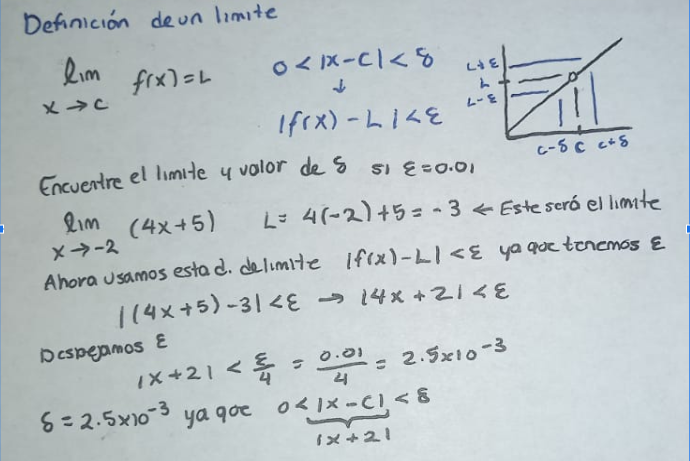 Definición de un limite
lim f(x)=L
x→c
0<|x-c|<δ
↓
|f(x)-L|<ε
L+ε
L
L-ε
c-δ c c+δ
Encuentre el limite y valor de δ si ε=0.01
lim (4x+5) L= 4(-2)+5=-3 ← Este será el limite
x→-2
Ahora usamos esta d. de limite |f(x)-L|<ε ya que tenemos ε
|(4x+5)-3|<ε → |4x+2|<ε
Despejamos ε
|x+2|< ε/4 = 0.01/4 = 2.5x10⁻³
δ=2.5x10⁻³ ya que 0<|x-c|<δ
|x+2|